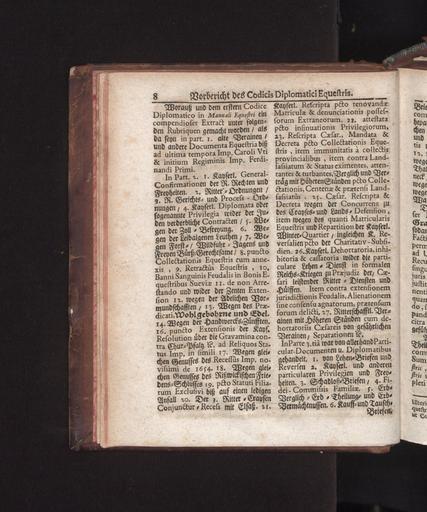 8 Vorbericht des Codicis Diplomatici Equestris.
Worauß und dem erstern Codice
Diplomatico in Manuali Equestri ein
compendioser Extract unter folgen-
den Rubriquen gemacht worden / als
da seyn in part. 1. alte Verainen /
und andere Documenta Equestria biß
ad ultima tempora Imp. Caroli Vti
& initium Regiminis Imp. Ferdi-
nandi Primi.
In Part. 2. 1. Kayserl. General-
Confirmationen der R. Rechten und
Freyheiten. 2. Ritter-Ordnungen /
3. R. Gerichts- und Process-Ord-
nungen / 4. Kayserl. Diplomata oder
sogenannte Privilegia wider der Ju-
den verderbliche Contracten / 5. We-
gen der Zoll-Befreyung. 6. We-
gen der Leibaigenen Leuthen / 7. We-
gen Forst- / Wildfuhr- Jagens und
Freyen Bürß-Gerechtsame / 8. puncto
Collectationis Equestris cum anne-
xis. 9. Retractûs Equestris, 10.
Banni Sanguinis Feudalis in Bonis E-
questribus Sueviæ 11. de non Arre-
stando und wider der Zenten Exten-
sion 12. wegen der Adelichen Vor-
mundschafften, 13. Wegen des Præ-
dicati Wohlgebohrne und Edel.
14. Wegen der Handwercks-Zünfften.
16. puncto Extentionis der Kayf.
Resolution über die Gravamina con-
tra Chur-Pfaltz &c. ad Reliquos Sta-
tus Imp. in simili 17. Wegen glei-
chen Genusses des Recessûs Imp. no-
vissimi de 1654. 18. Wegen glei-
chen Genusses des Rißwickischen Frie-
dens-Schlusses 19. pcto Statuti Filia-
rum Exclusivi biß auf einen ledigen
Anfall 20. Der 3. Ritter-Craysen
Conjunctur-Recess mit Elsaß. 21.
Kayserl. Rescripta pcto renovandæ
Matriculæ & denunciationis posses-
sorum Extraneorum. 22. attestata
pcto insinuationis Privilegiorum,
23. Rescripta Cæsar. Mandata &
Decreta pcto Collectationis Eque-
stris, item immunitatis à collectis
provincialibus, item contra Land-
sassiatum & Status eximentes, atten-
tantes & turbantes, Verglich und Ver-
träg mit Höheren Ständen pcto Colle-
ctationis, Centenæ & prætensi Land-
sassiatûs. 25. Cæsar. Rescripta &
Decreta wegen der Concurrenz zu
des Crayses- und Lands-Defension,
item wegen des quanti Matricularis
Equestris und Repartition der Kayserl.
Winter-Quartier / ingleichen K. Re-
versalien pcto der Charitativ-Subsi-
dien. 26. Kayserl. Dehortatoria, inhi-
bitoria & cassatoria wider die parti-
culare Lehen-Dienst in formalen
Reichs-Kriegen zu Præjudiz der Cæ-
sari leistender Ritter-Diensten und
Hülffen. Item contra extentionem
jurisdictionis Feudalis. Alienationem
sine consensu agnatorum, prætensum
forum delicti, 27. Ritterschafftl. Ver-
ainen mit Höheren Ständen cum de-
hortatoriis Cæsareis von gefährlichen
Verainen / Separationen &c.
In Parte 3. tiâ war von allerhand Parti-
cular-Documenten u. Diplomatibus
gehandlet. 1. von Lehen-Briefen und
Reversen 2. Kayserl. und anderen
particularen Privilegien und Frey-
heiten. 3. Schadloß-Briefen / 4. Fi-
dei-Commiss Familiæ. 5. Erb-
Verglich / Erb-Theilung- und Erb-
Vermächtnussen. 6. Kauff- und Tausch-
Briefen,